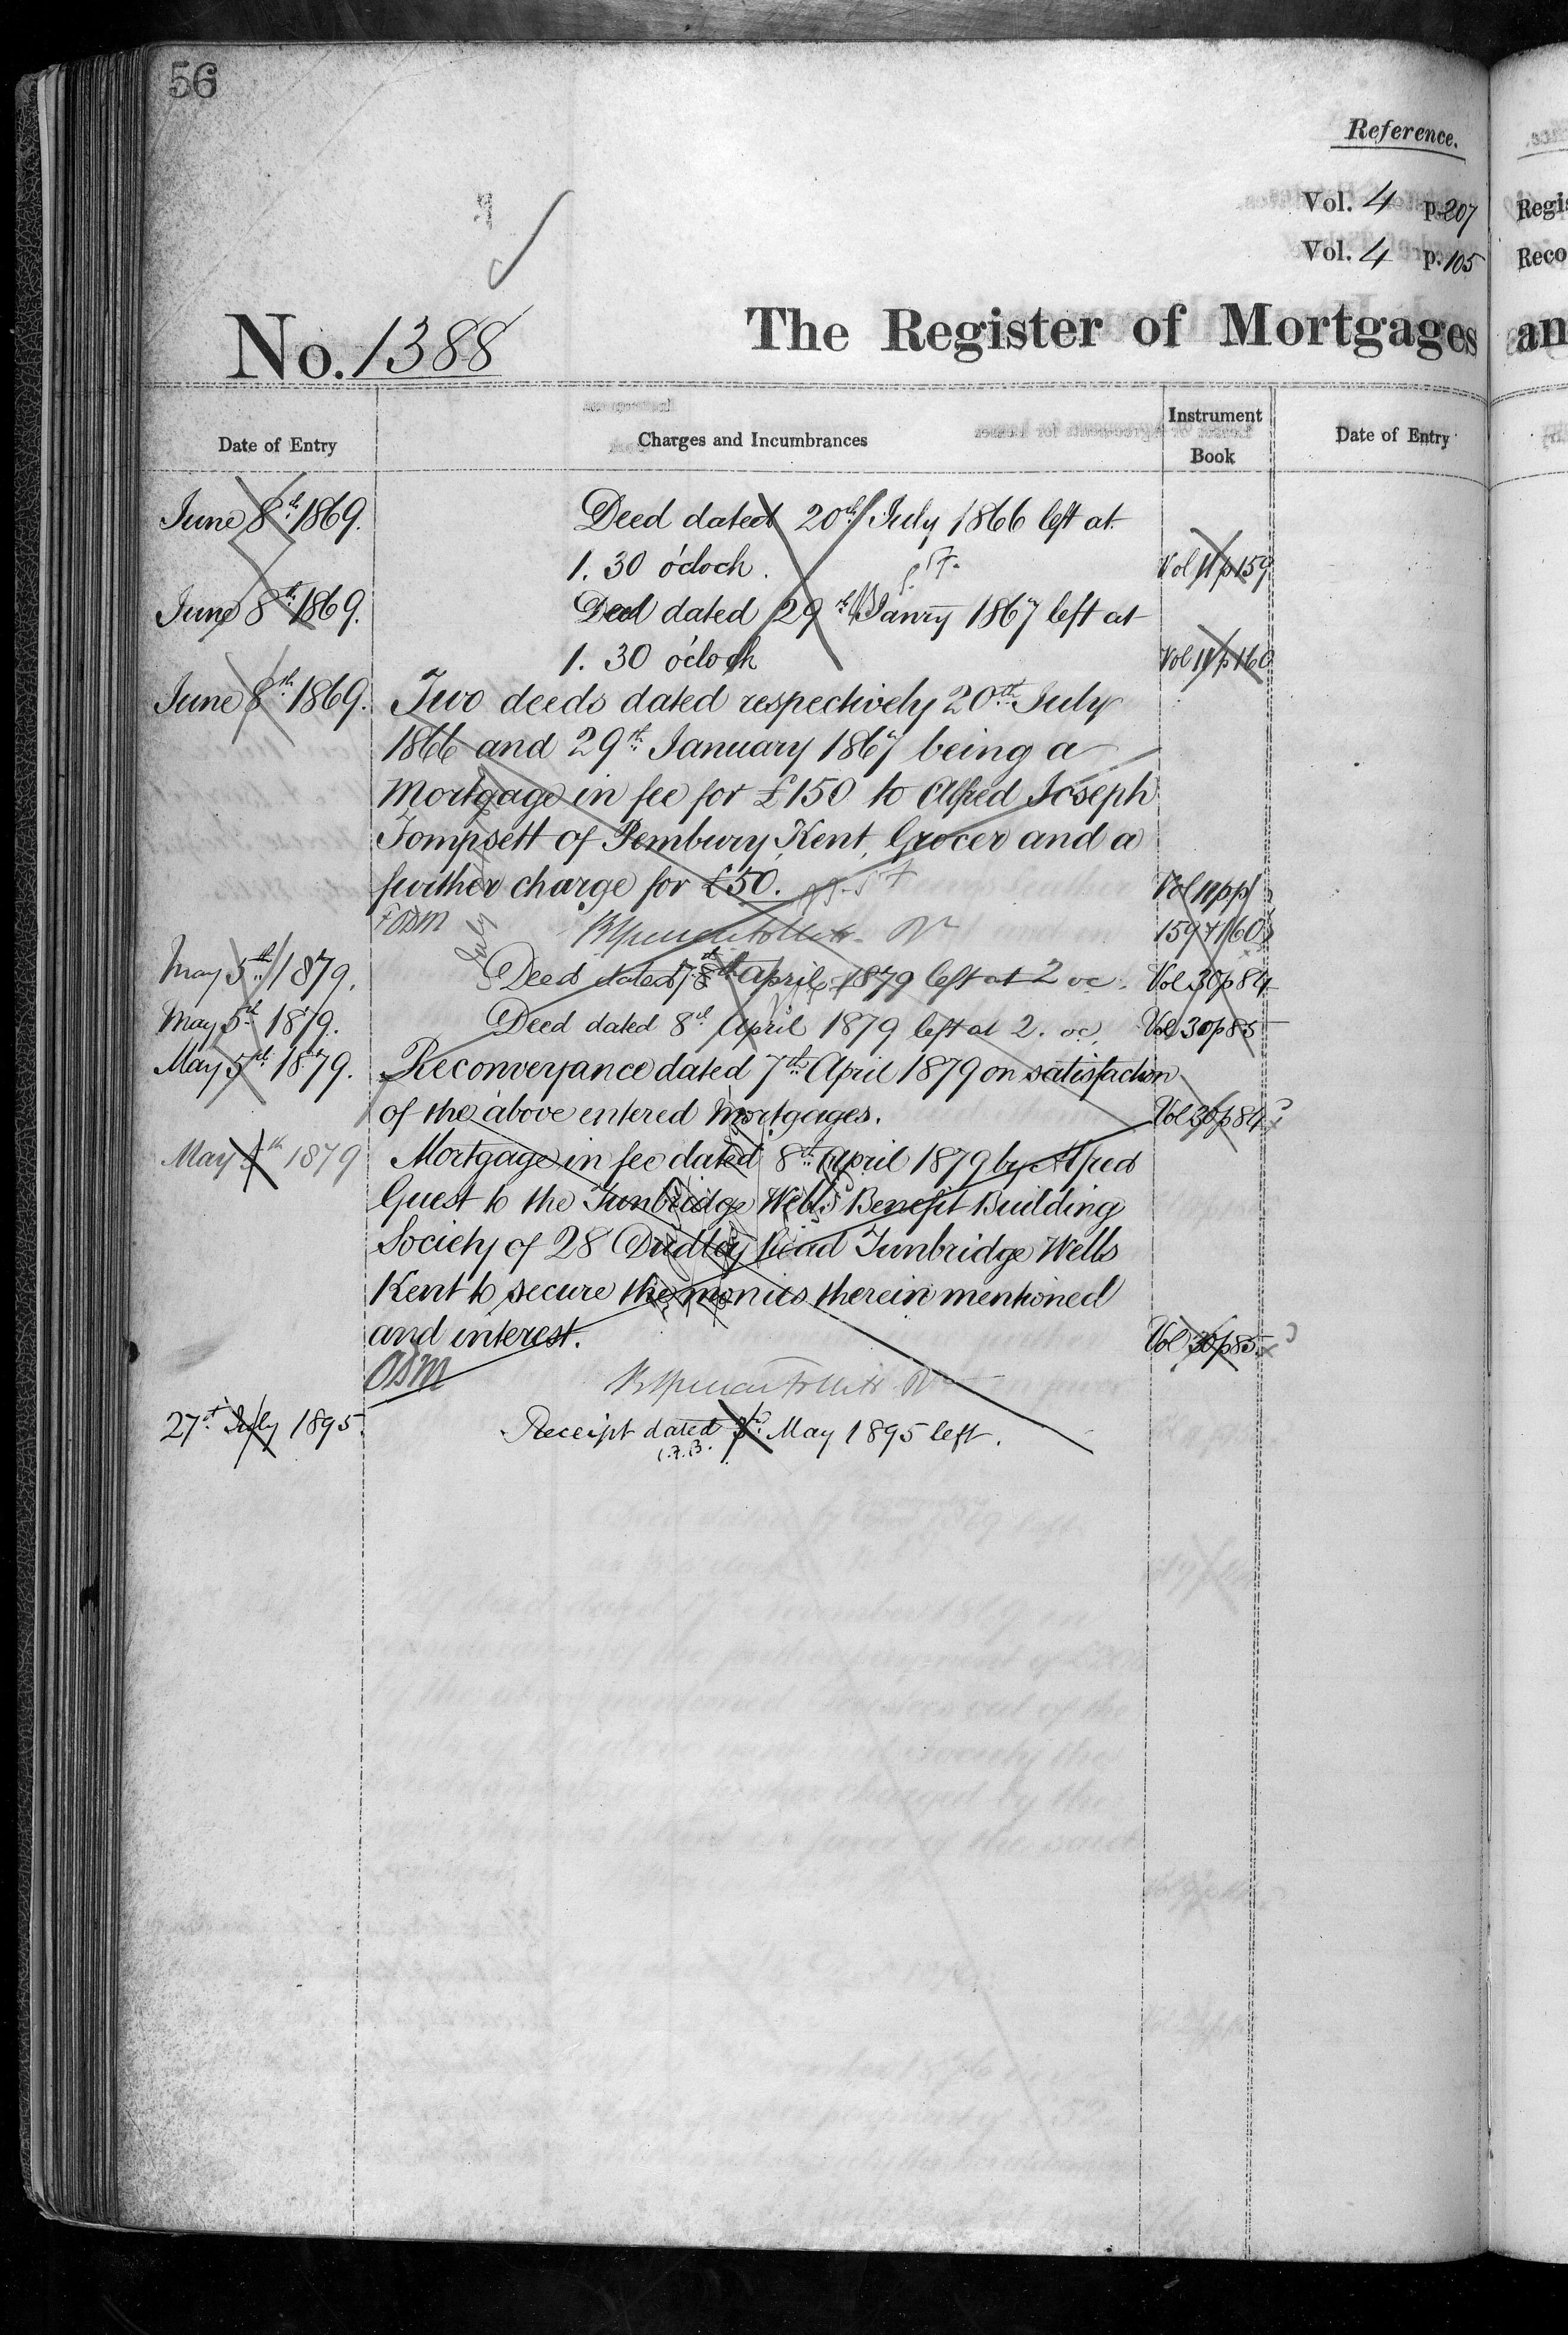 56
Reference.
Vol. 4 p. 207
Regis
Vol. 4 p. 105
Reco
No. 1388
The Register of Mortgages
an
Date of Entry
Charges and Incumbrances
Instrument Book
Date of Entry
June 8th 1869.
Deed dated 20th July 1866 left at
1. 30 o'clock.
Vol 11 p 159
June 8th 1869.
Deed dated 29th Janry 1867 left at
1. 30 o'clock
Vol 11 p 160
June 8th 1869.
Two deeds dated respectively 20th July
1866 and 29th January 1867 being a
Mortgage in fee for £150 to Alfred Joseph
Tompsett of Pembury, Kent, Grocer and a
further charge for £50.
Vol 11 pp
159 + 160
May 5th 1879.
Deed dated 7th April 1879 left at 2 oc.
Vol 30 p 84
May 5th 1879.
Deed dated 8th April 1879 left at 2. oc.
Vol 30 p 85
May 5th 1879.
Reconveyance dated 7th April 1879 on satisfaction
of the above entered mortgages.
Vol 30 p 84
May 5th 1879
Mortgage in fee dated 8th April 1879 by Alfred
Guest to the Tunbridge Wells Benefit Building
Society of 28 Dudley Road Tunbridge Wells
Kent to secure the monies therein mentioned
and interest.
Vol 30 p 85
27th July 1895.
Receipt dated 3rd May 1895 left.